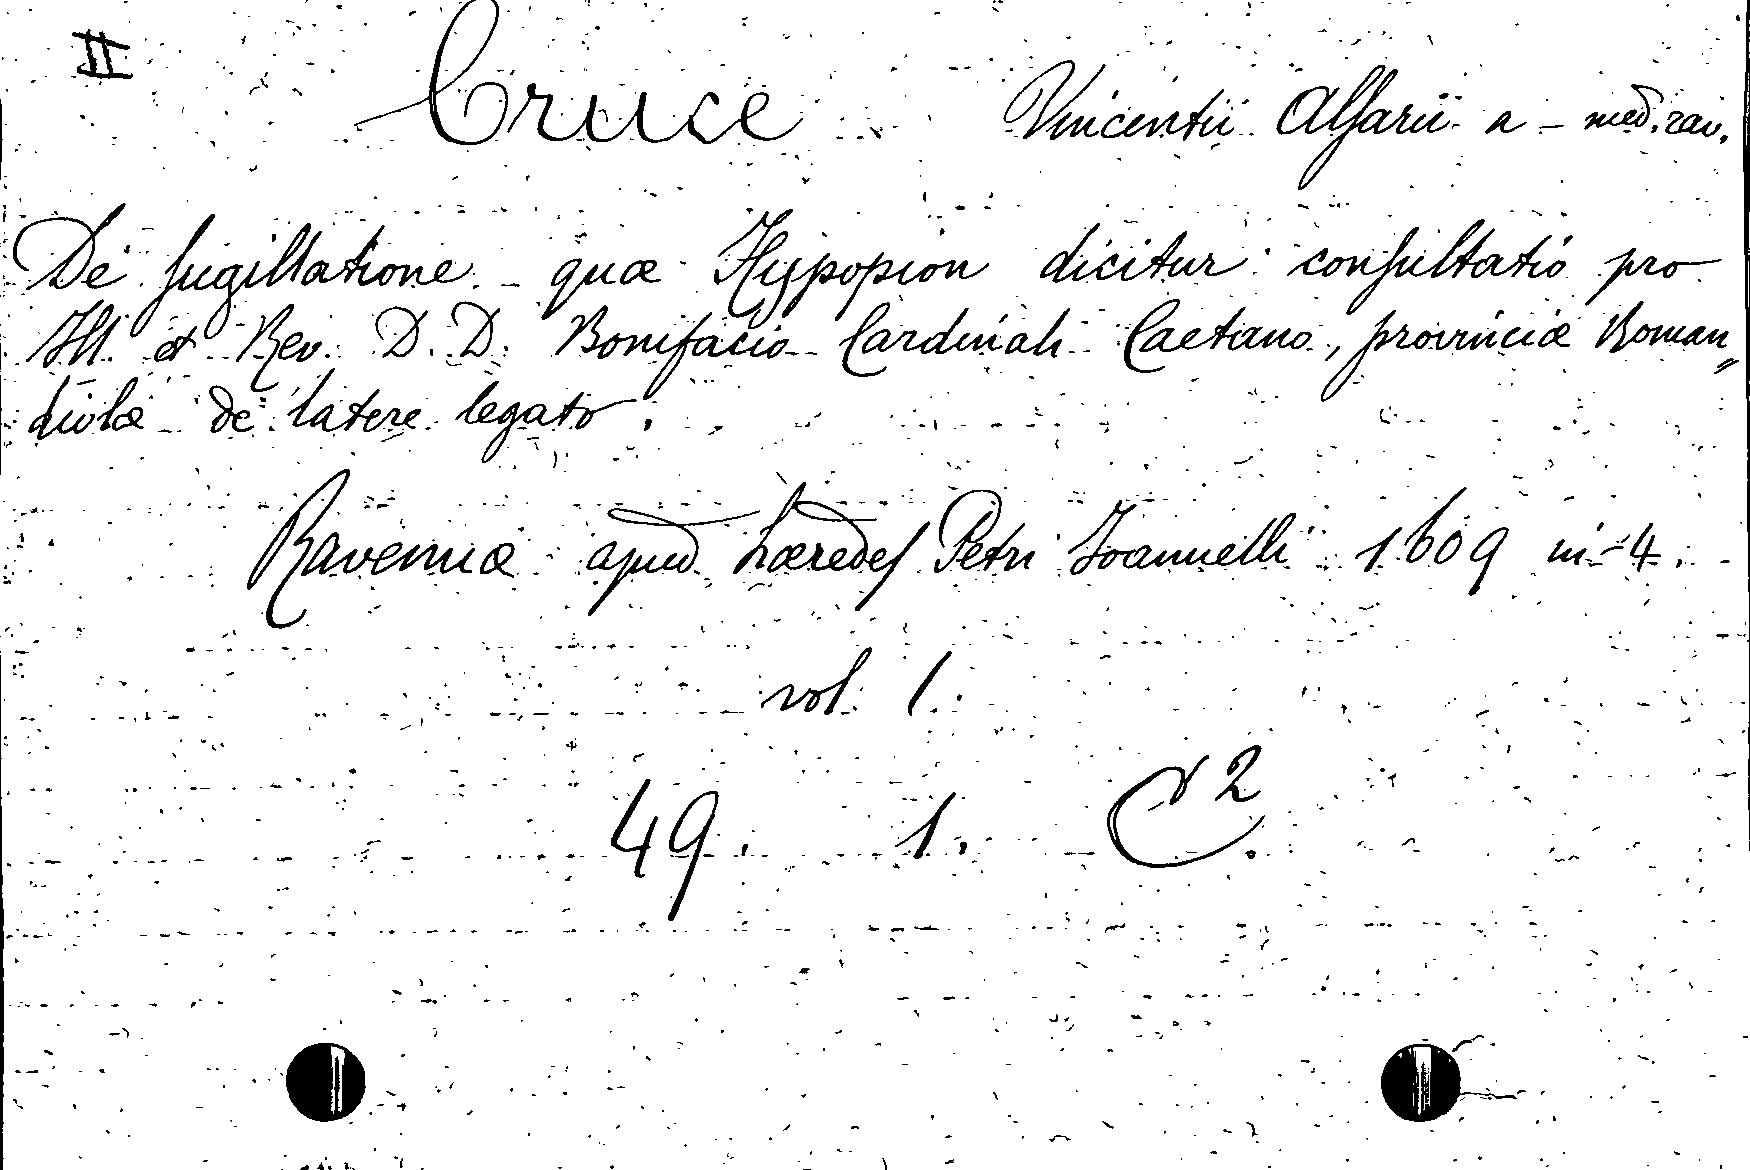 II Cruce Vincentii Alsarii a - med. rav.
De sugillatione quæ Hypopion dicitur consultatio pro
Ill. et Rev. D. D. Bonifacio Cardinali Caetano, provinciæ Roman„
diolæ de latere legato.
Ravennæ apud hæredes Petri Joannelli 1609 in-4.
vol. 1.
49. 1. C².